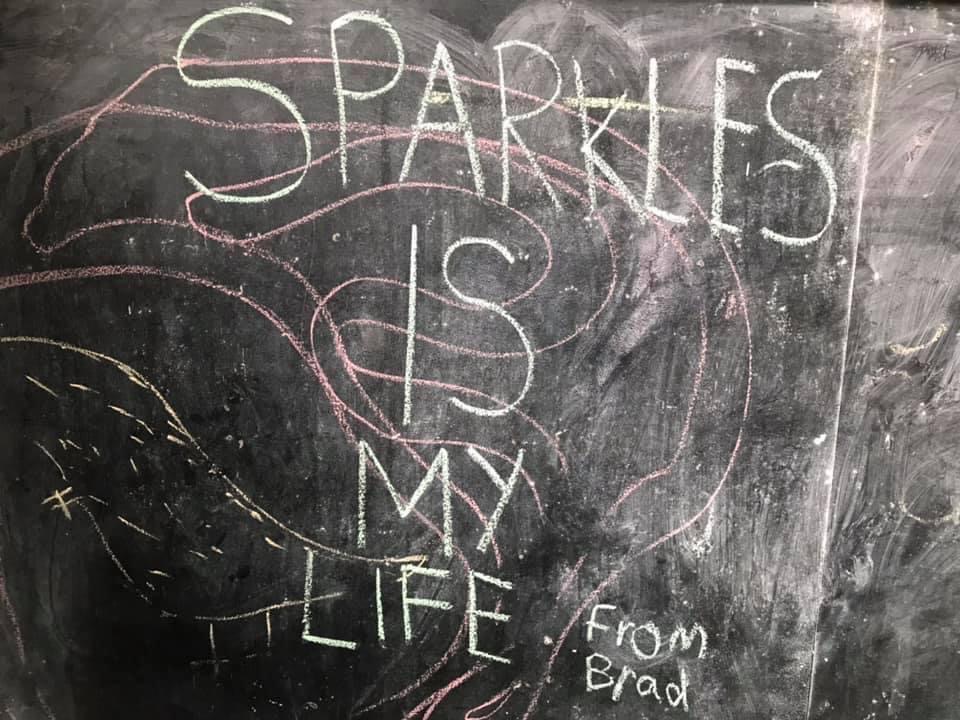 SPARKLES
IS
MY
LIFE
From
Brad